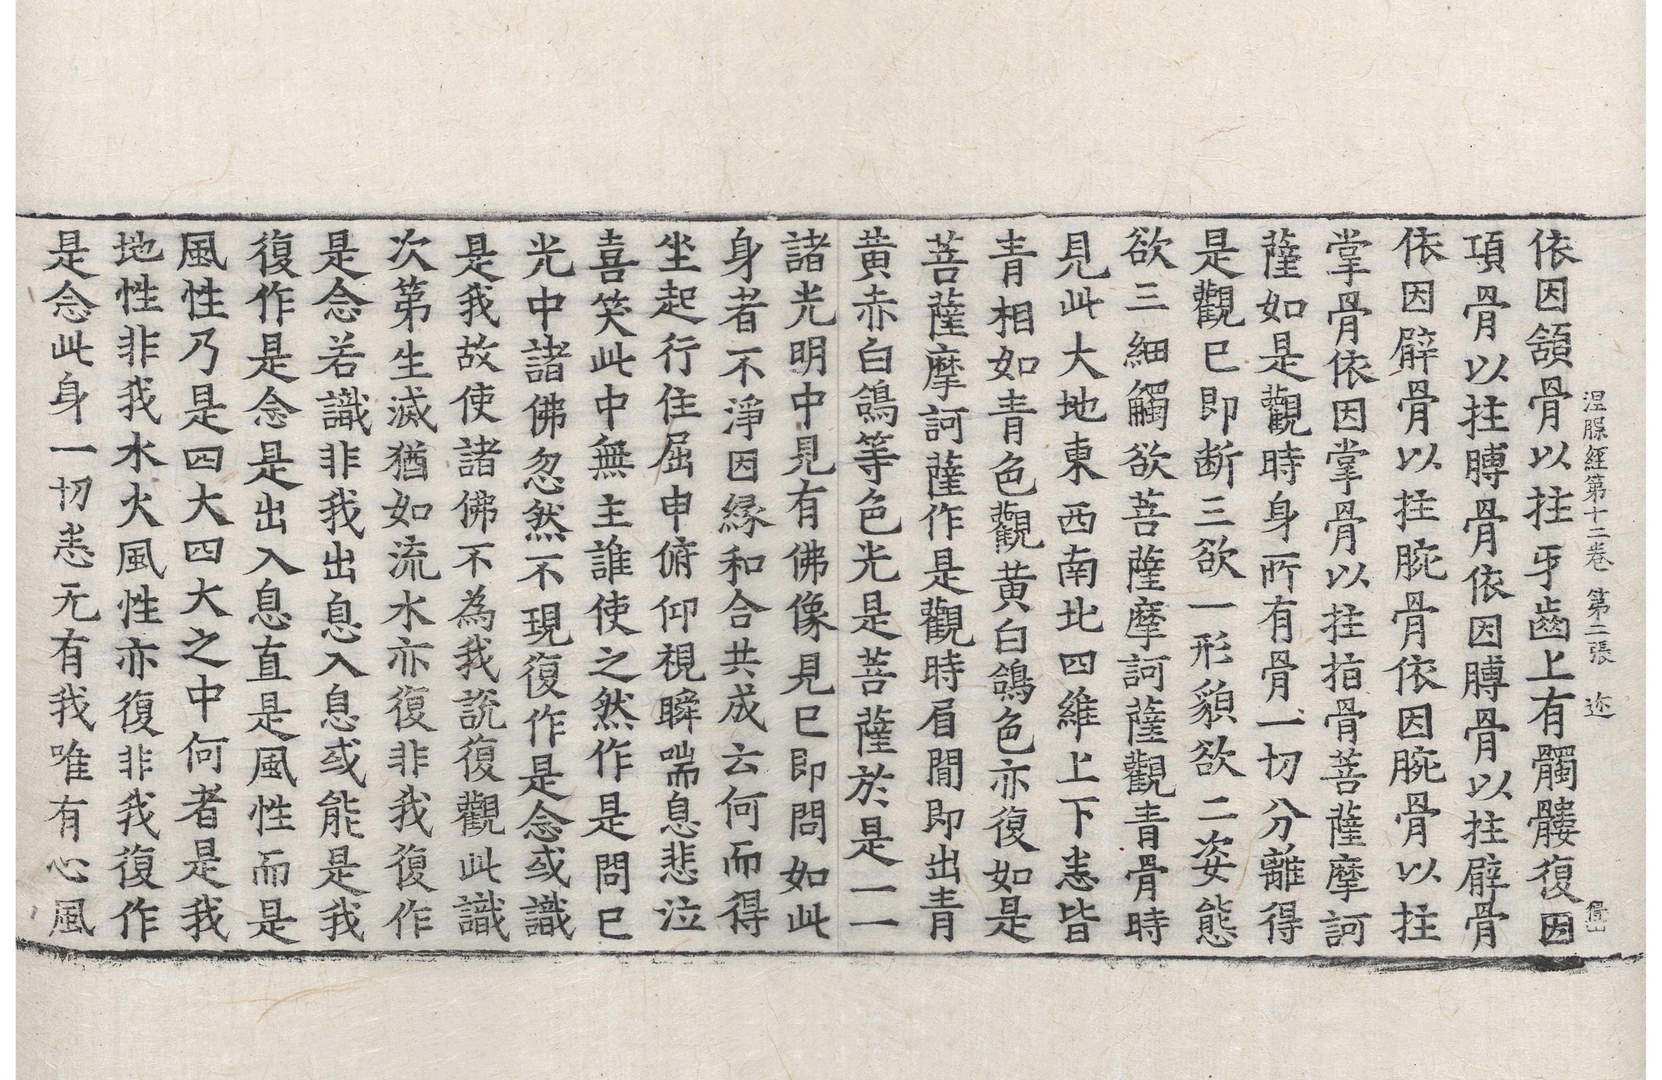 涅槃經第十二卷　第二張　迹
依因頷骨以拄牙齒上有髑髏復因
項骨以拄膞骨依因膞骨以拄臂骨
依因臂骨以拄腕骨依因腕骨以拄
掌骨依因掌骨以拄指骨菩薩摩訶
薩如是觀時身所有骨一切分離得
是觀已即断三欲一形貌欲二姿態
欲三細觸欲菩薩摩訶薩觀青骨時
見此大地東西南北四維上下悉皆
青相如青色觀黃白鴿色亦復如是
菩薩摩訶薩作是觀時眉間即出青
黃赤白鴿等色光是菩薩於是一一
諸光明中見有佛像見已即問如此
身者不淨因緣和合共成云何而得
坐起行住屈申俯仰視瞬喘息悲泣
喜笑此中無主誰使之然作是問已
光中諸佛忽然不現復作是念或識
是我故使諸佛不為我說復觀此識
次第生滅猶如流水亦復非我復作
是念若識非我出息入息或能是我
復作是念是出入息直是風性而是
風性乃是四大四大之中何者是我
地性非我水火風性亦復非我復作
是念此身一切悉无有我唯有心風